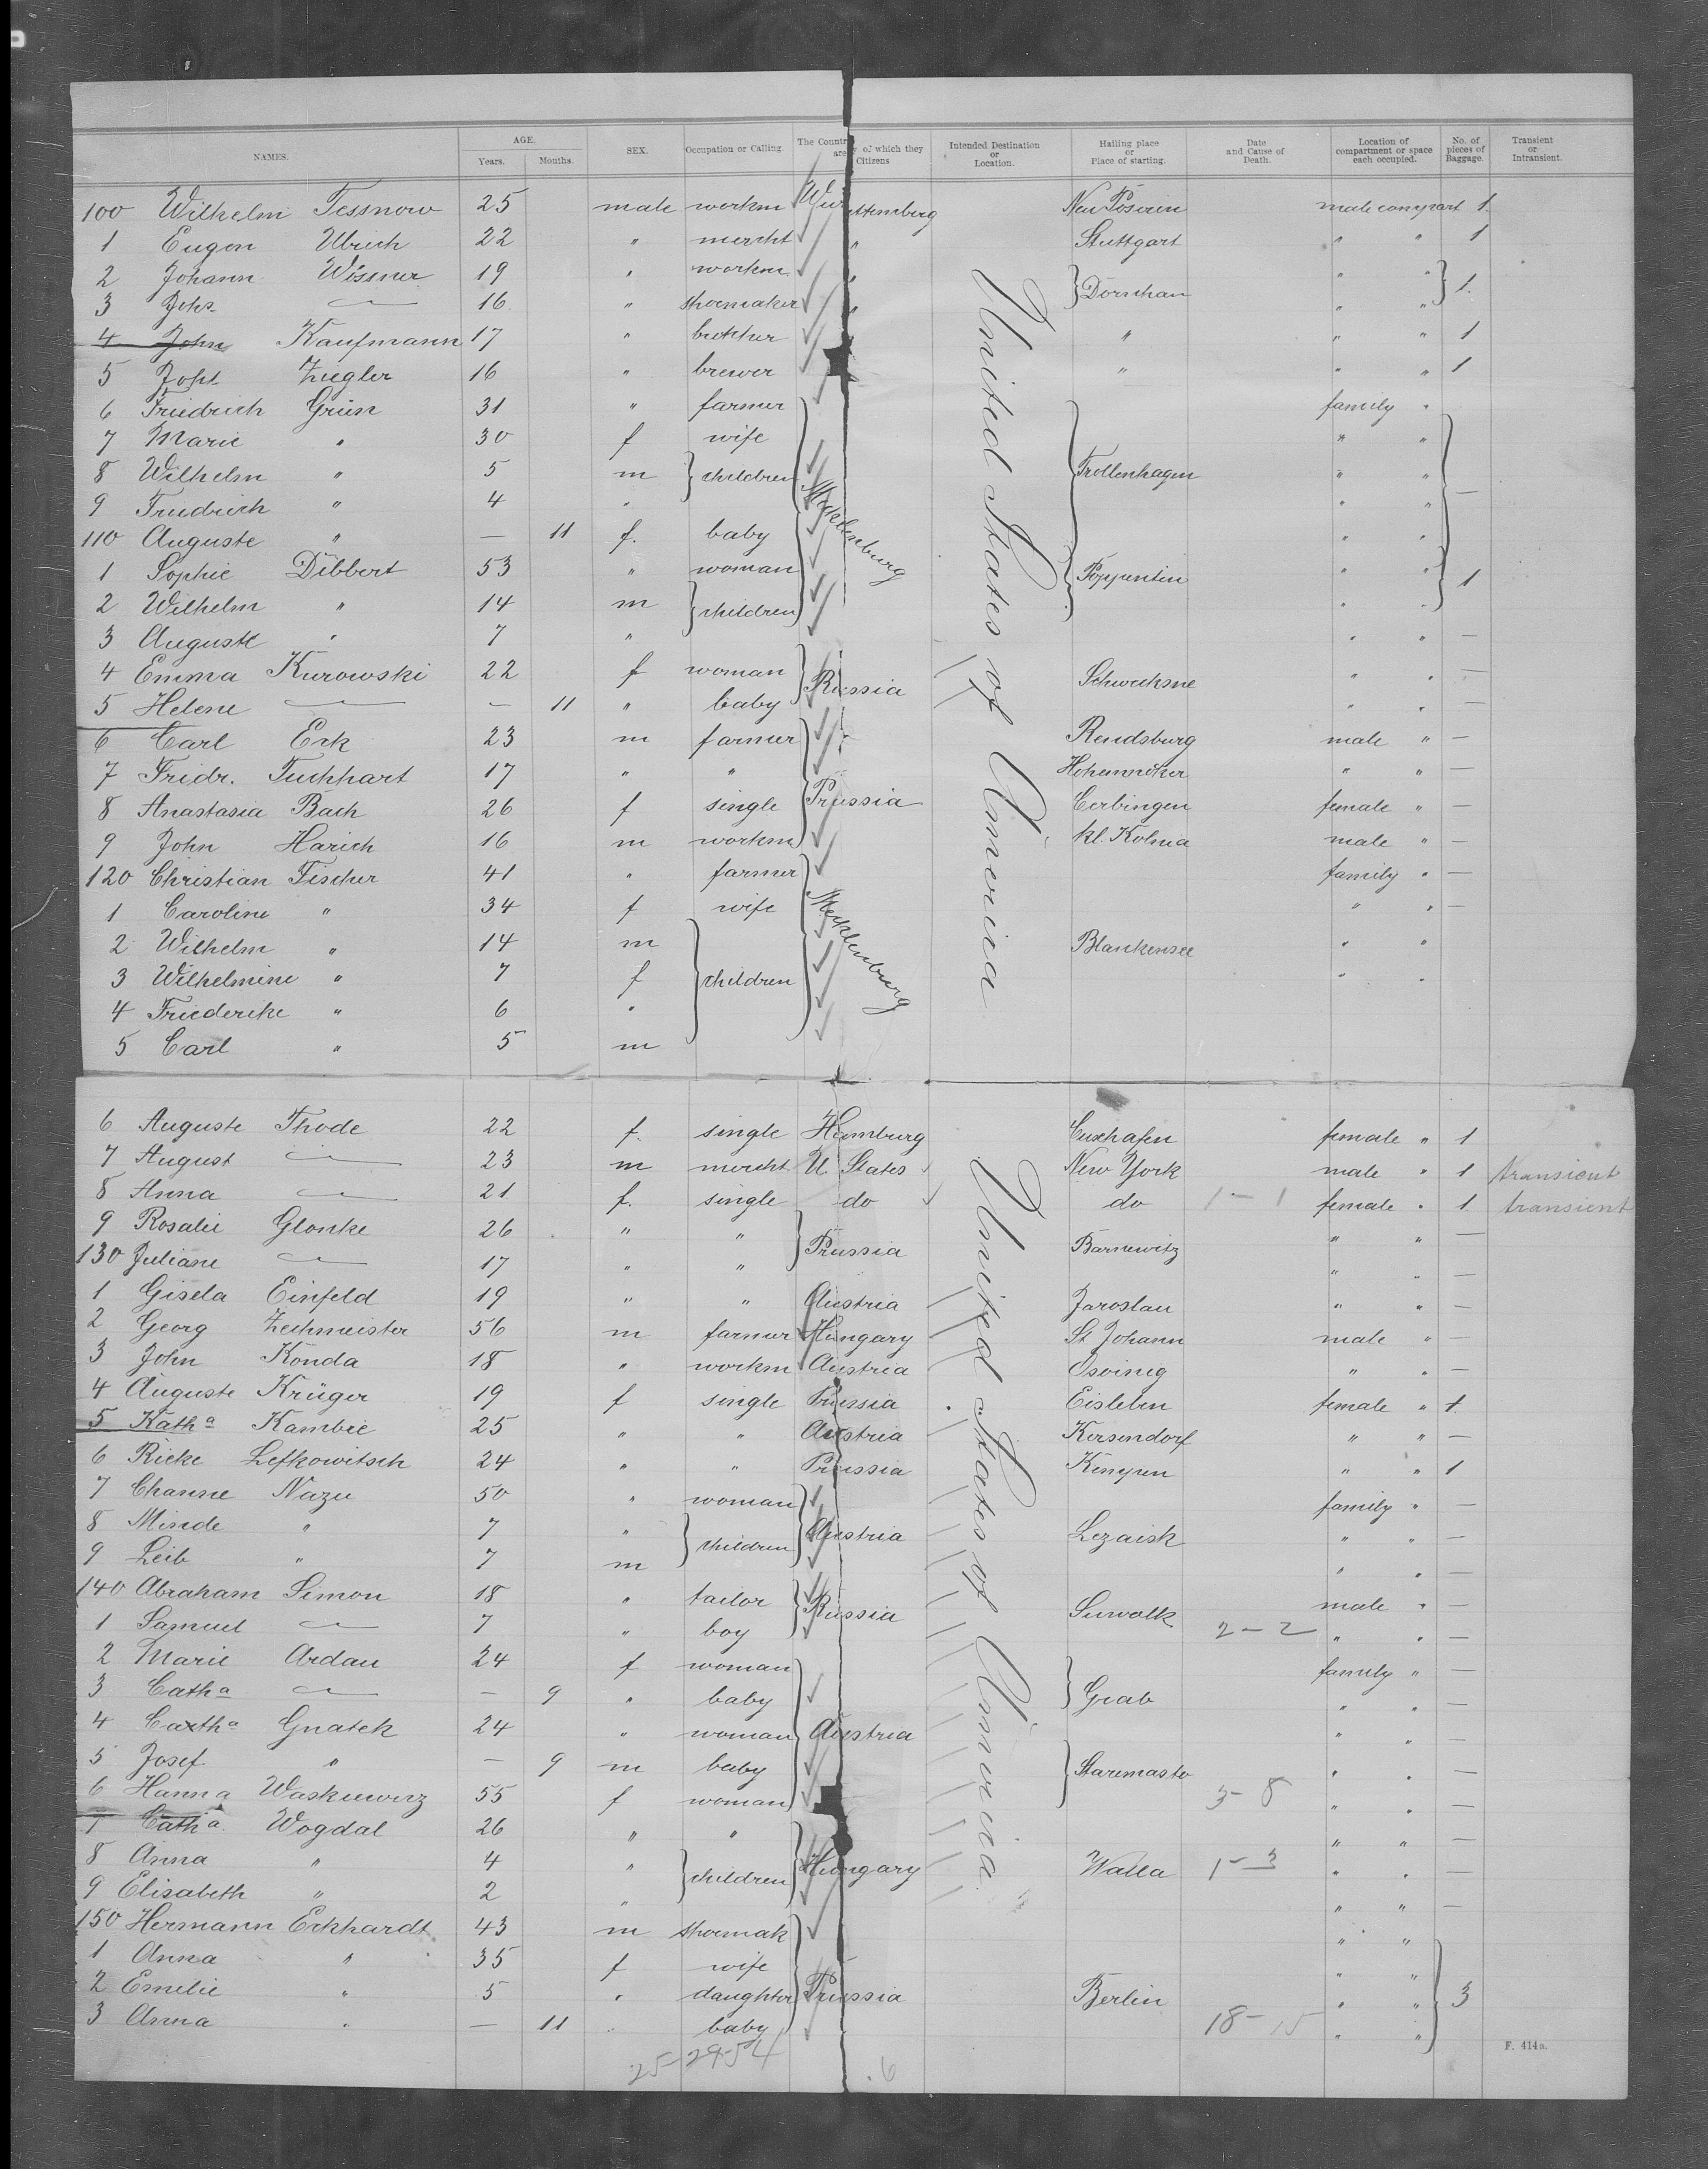 NAMES. AGE. Years. Months. SEX. Occupation or Calling. The Country of which they are Citizens Intended Destination or Location. Hailing place or Place of starting. Date and Cause of Death. Location of compartment or space each occupied. No. of pieces of Baggage. Transient or Intransient.
100 Wilhelm Tessnow 25 male workm Württemberg Neu Poserin male compart 1
1 Eugen Ulrich 22 " mercht " Stuttgart " " 1
2 Johann Wössner 19 " workm " Dornhan " " 1
3 Johs — 16 " shoemaker " " "
4 John Kaufmann 17 " butcher " " " 1
5 Joh Ziegler 16 " brewer " " " 1
6 Friedrich Grün 31 " farmer family "
7 Marie " 30 f wife " "
8 Wilhelm " 5 m children Mecklenburg Trollenhagen " "
9 Friedrich " 4 " " " —
110 Auguste " — 11 f. baby " "
1 Sophie Dibbert 53 " woman Poppentin " " 1
2 Wilhelm " 14 m children " "
3 Auguste " 7 " " " —
4 Emma Kurowski 22 f woman Russia Schweksne " " —
5 Helene — — 11 " baby " " —
6 Carl Eck 23 m farmer Rendsburg male " —
7 Fridr. 17 " " " " —
8 Anastasia Bach 26 f single Prussia female " —
9 John Harich 16 m workm kl. male " —
120 Christian Fischer 41 " farmer family " —
1 Caroline " 34 f wife Mecklenburg " " —
2 Wilhelm " 14 m Blankensee " "
3 Wilhelmine " 7 f children " "
4 Friederike " 6 "
5 Carl " 5 m
United States of America
6 Auguste Thode 22 f. single Hamburg Cuxhafen female " 1
7 August — 23 m mercht U States New York male " 1 transient
8 Anna — 21 f. single do do 1 - 1 female " 1 transient
9 Rosalie Glonke 26 " " Prussia Barnewitz " " —
130 Juliane — 17 " " " " —
1 Gisela Einfeld 19 " " Austria Jaroslau " " —
2 Georg Zechmeister 56 m farmer Hungary St Johann male " —
3 John Konda 18 " workm Austria " " —
4 Auguste Krüger 19 f single Prussia Eisleben female " 1
5 Katha Kambic 25 " " Austria Kersendorf " " —
6 Rieke Lefkowitsch 24 " " Prussia " " 1
7 Channe Nazu 50 " woman family " —
8 Minde " 7 " children Austria Lezaisk " " —
9 Leib " 7 m " " —
140 Abraham Simon 18 " tailor Russia Suwalk male " —
1 Samuel — 7 " boy 2 - 2 " " —
2 Marie Ardau 24 f woman family " —
3 Catha — — 9 " baby Grab " " —
4 Catha Gnatek 24 " woman Austria " " —
5 Josef " — 9 m baby Staremasto " " —
6 Hanna Waskiewicz 55 f woman 3 - 8 " " —
7 Catha Wogdal 26 " " " " —
8 Anna " 4 " children Hungary Walla 1 - 3 " " —
9 Elisabeth " 2 " " " —
150 Hermann Eckhardt 43 m shoemak " "
1 Anna " 35 f wife " "
2 Emelie " 5 " daughter Prussia Berlin " " 3
3 Anna " — 11 baby 18 - 15 " "
United States of America
F. 414a.